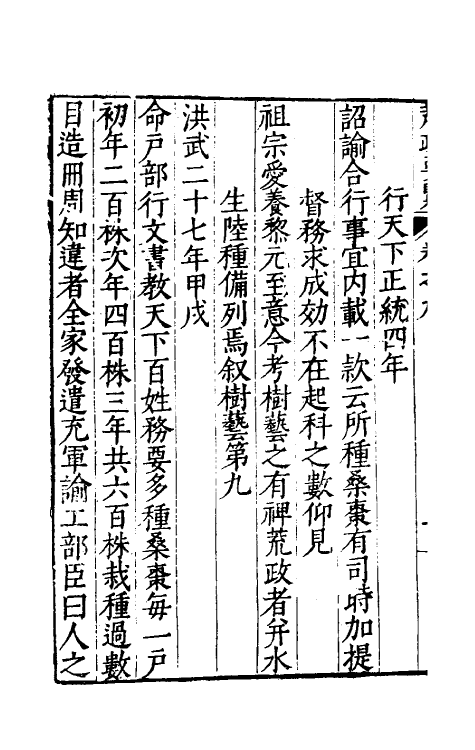 行天下正統四年
詔諭合行事宜内載一款云所種桑棗有司時加提
督務求成効不在起科之數仰見
祖宗愛養黎元至意今考樹藝之有裨荒政者并水
生陸種備列焉叙樹藝第九
洪武二十七年甲戌
命戸部行文書教天下百姓務要多種桑棗每一戸
初年二百株次年四百株三年共六百株栽種過數
目造冊周知違者全家發遣充軍諭工部臣曰人之